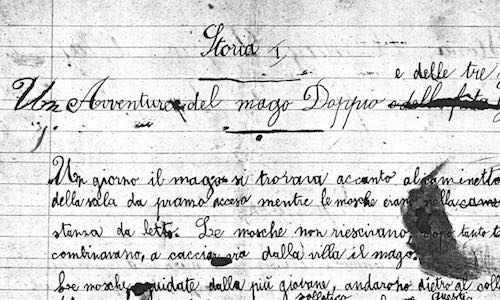 Storia I
e delle tre
Un Avventure del mago Doppio o della fata
Un giorno il mago si trovava accanto al caminetto
della sala da pranzo acceso mentre le mosche erano nella came
stanza da letto. Le mosche non riescivano dopo tanto t
combinavano, a cacciar via dalla villa il mago.
Le mosche, guidate dalla più giovane, andarono dietro al coll